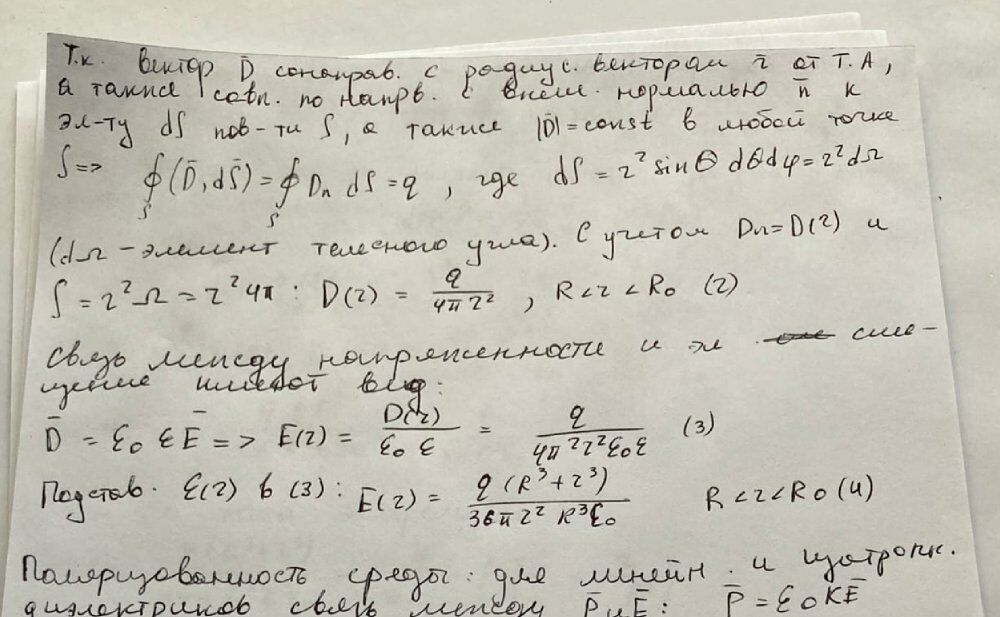 Т.к. вектор D̄ сонаправ. с радиус. вектором r̄ от т. А,
а также совп. по напрв. с внеш. нормалью n̄ к
эл-ту dS пов-ти S, а также |D̄| = const в любой точке
S => ∮_S (D̄, dS̄) = ∮_S Dn dS = q , где dS = r² sinθ dθ dφ = r² dΩ
(dΩ – элемент телесного угла). С учетом Dn = D(r) и
S = r² Ω = r² 4π : D(r) = q / 4π r² , R < r < R₀ (2)
Связь между напряженности и эл. сме-
щение имеют вид:
D̄ = ε₀ ε Ē => E(r) = D(r) / ε₀ ε = q / 4π r² ε₀ ε (3)
Подстав. ε(r) в (3) : E(r) = q (R³ + r³) / 36π r² R³ ε₀ R < r < R₀ (4)
Поляризованность среды: для линейн. и изотропн.
диэлектриков связь между P̄ и Ē : P̄ = ε₀ K Ē